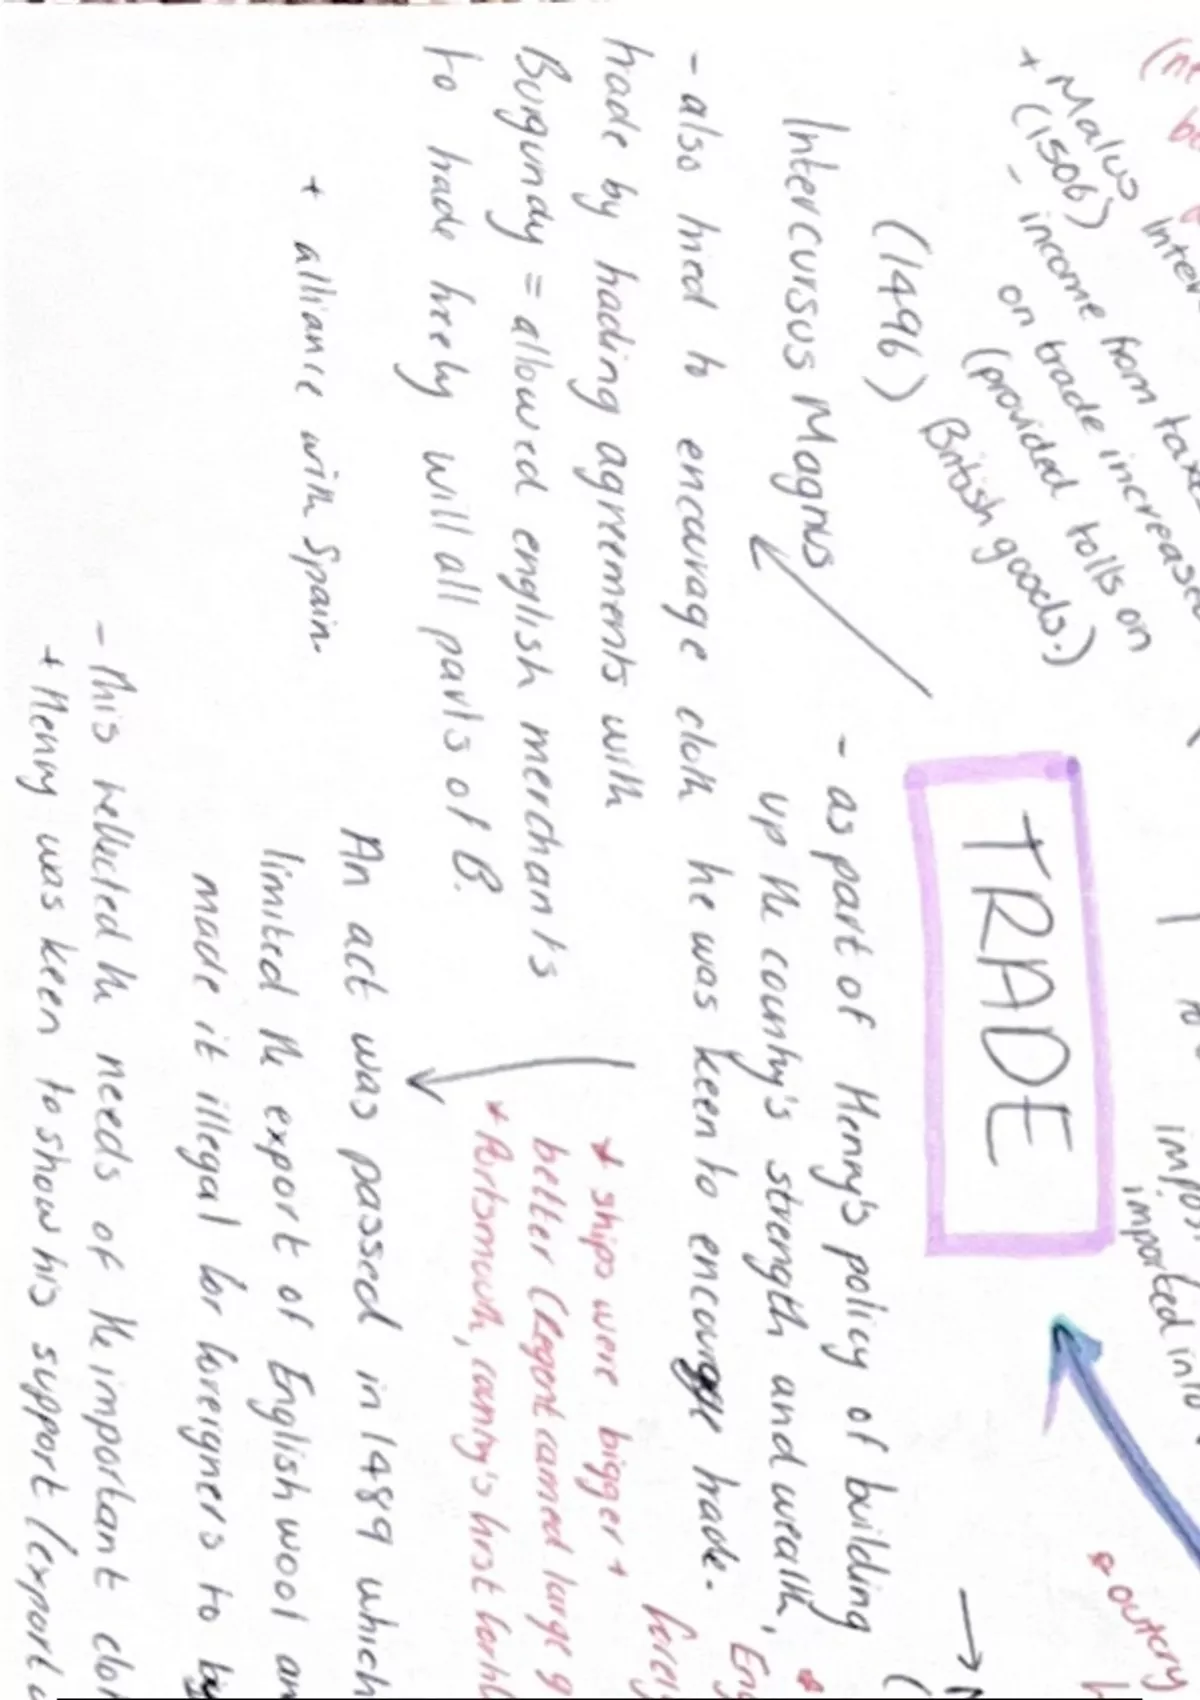 + Malus
(1506)
Inter
- income from taxe
on trade increased
(provided tolls on
British goods.)
(1496)
Intercursus Magnus
- also tried to encourage cloth
trade by trading agreements with
Burgundy = allowed english merchant's
to trade freely will all parts of B.
+ alliance with Spain.
TRADE
imported into
- as part of Henry's policy of building
up the country's strength and wealth,
he was keen to encourage trade.
* ships were bigger +
better (Regent carried large g
* Portsmouth, country's first forti
* outcry
An act was passed in 1489 which
limited the export of English wool an
made it illegal for foreigners to
- This reflected the needs of the important clot
+ Henry was keen to show his support (export